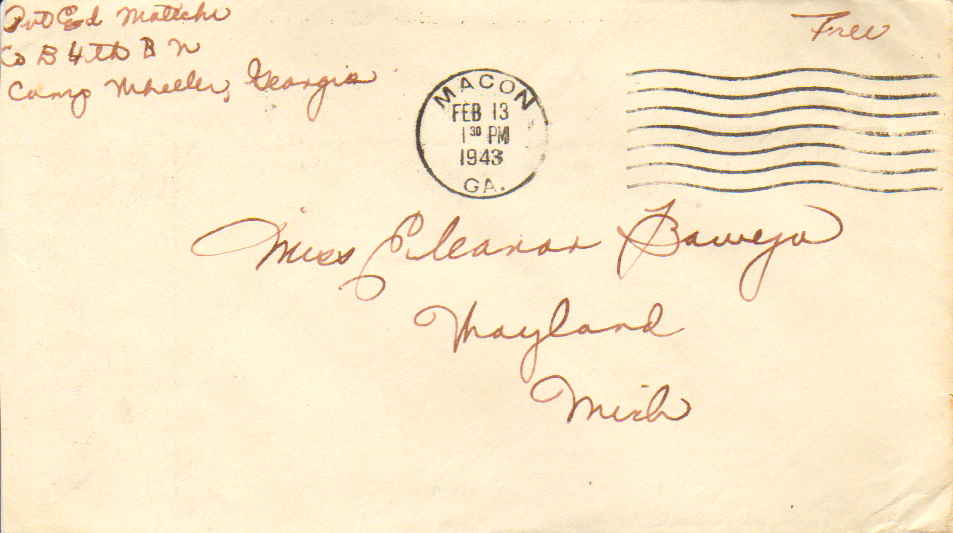 Pvt Ed Matteke
Co B 4th B N
Camp Wheeler, Georgia
Free
MACON
FEB 13
1 30 PM
1943
GA.
Miss Eleanor Baweja
Mayland
Mich